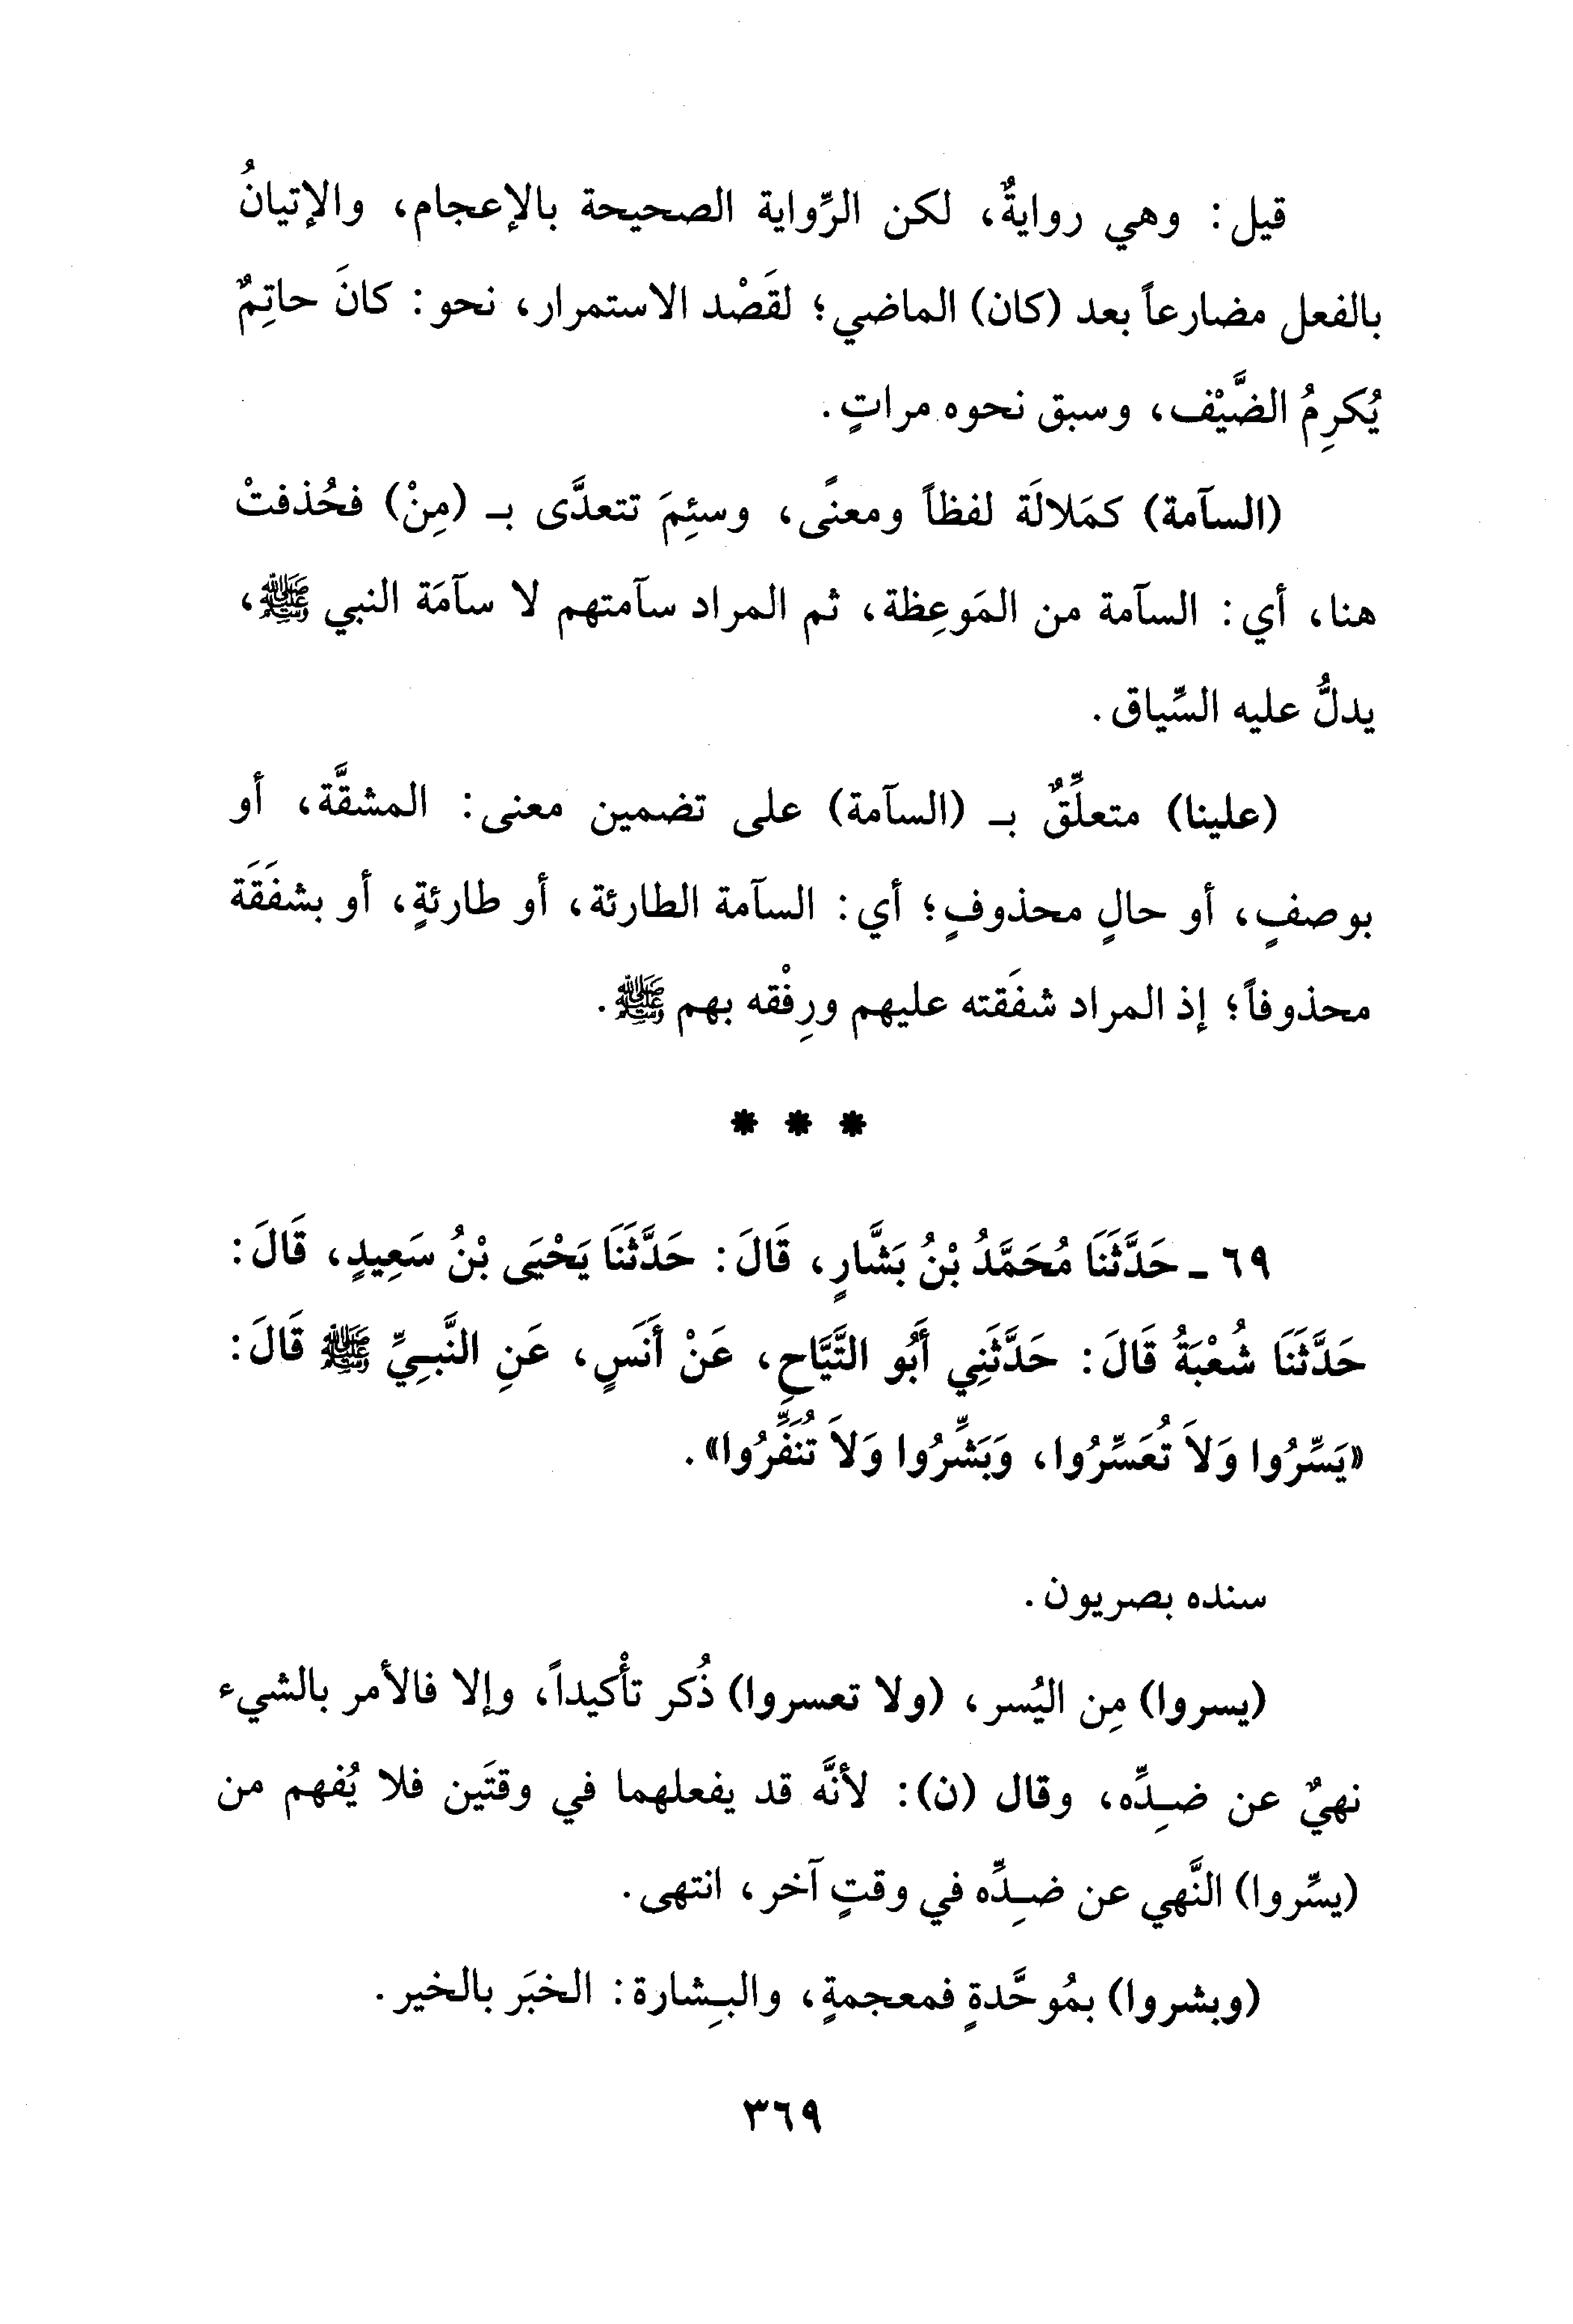 قيل: وهي روايةٌ، لكن الرِّواية الصحيحة بالإعجام، والإتيانُ
بالفعل مضارعاً بعد (كان) الماضي؛ لقَصْد الاستمرار، نحو: كانَ حاتِمٌ
يُكرِمُ الضَّيْف، وسبق نحوه مراتٍ.
(السآمة) كمَلالَة لفظاً ومعنًى، وسئِمَ تتعدَّى بـ (مِنْ) فحُذفتْ
هنا، أي: السآمة من المَوعِظة، ثم المراد سآمتهم لا سآمَة النبي ﷺ،
يدلُّ عليه السِّياق.
(علينا) متعلِّقٌ بـ (السآمة) على تضمين معنى: المشقَّة، أو
بوصفٍ، أو حالٍ محذوفٍ؛ أي: السآمة الطارئة، أو طارئةٍ، أو بشفَقَة
محذوفاً؛ إذ المراد شفَقته عليهم ورِفْقه بهم ﷺ.
* * *
٦٩ ـ حَدَّثَنَا مُحَمَّدُ بْنُ بَشَّارٍ، قَالَ: حَدَّثَنَا يَحْيَى بْنُ سَعِيدٍ، قَالَ:
حَدَّثَنَا شُعْبَةُ قَالَ: حَدَّثَنِي أَبُو التَّيَّاحِ، عَنْ أَنَسٍ، عَنِ النَّبِيِّ ﷺ قَالَ:
«يَسِّرُوا وَلاَ تُعَسِّرُوا، وَبَشِّرُوا وَلاَ تُنَفِّرُوا».
سنده بصريون.
(يسروا) مِن اليُسر، (ولا تعسروا) ذُكر تأْكيداً، وإلا فالأمر بالشيء
نهيٌ عن ضِدِّه، وقال (ن): لأنَّه قد يفعلهما في وقتَين فلا يُفهم من
(يسِّروا) النَّهي عن ضِدِّه في وقتٍ آخر، انتهى.
(وبشروا) بمُوحَّدةٍ فمعجمةٍ، والبِشارة: الخبَر بالخير.
٣٦٩